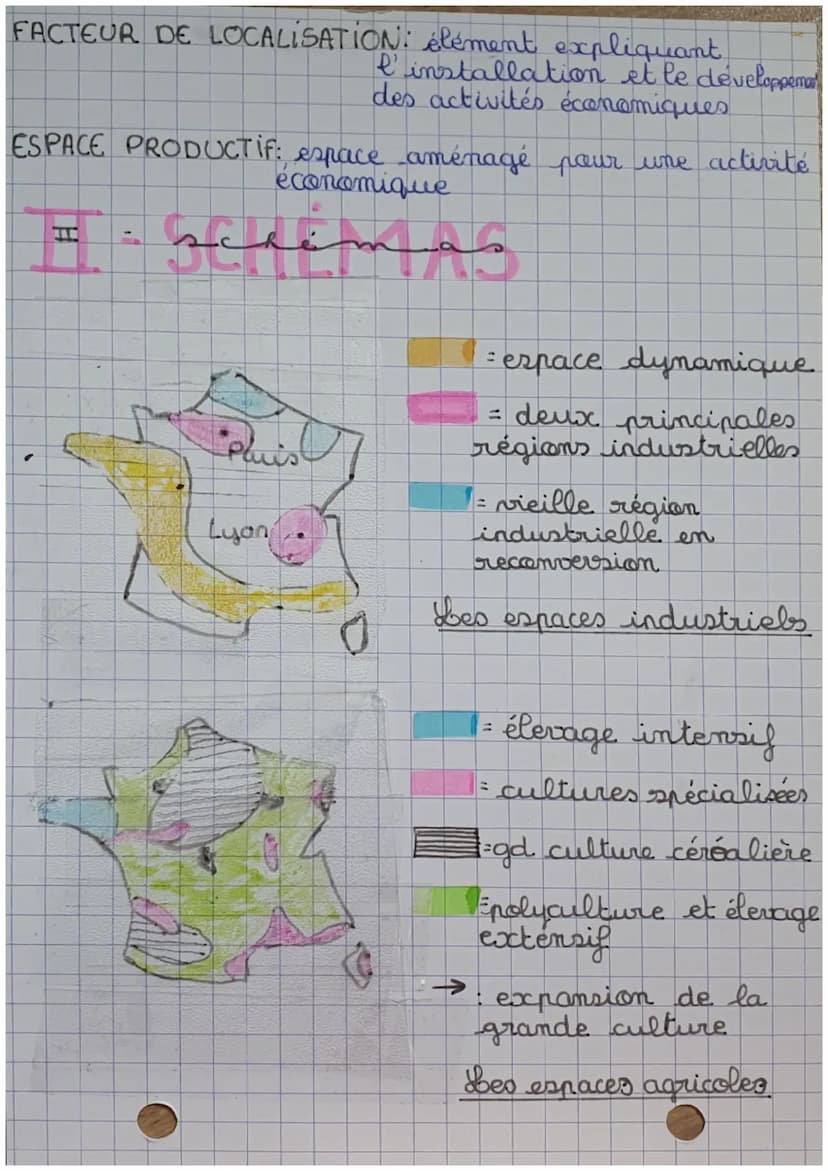 FACTEUR DE LOCALISATION: élément expliquant
l'installation et le développement
des activités économiques
ESPACE PRODUCTIF: espace aménagé pour une activité
économique
II - SCHÉMAS
schémas
= espace dynamique
= deux principales
régions industrielles
Paris
= vieille région
industrielle en
reconversion
Lyon
Les espaces industriels
= élevage intensif
= cultures spécialisées
= gd culture céréalière
= polyculture et élevage
extensif
→ : expansion de la
grande culture
Les espaces agricoles